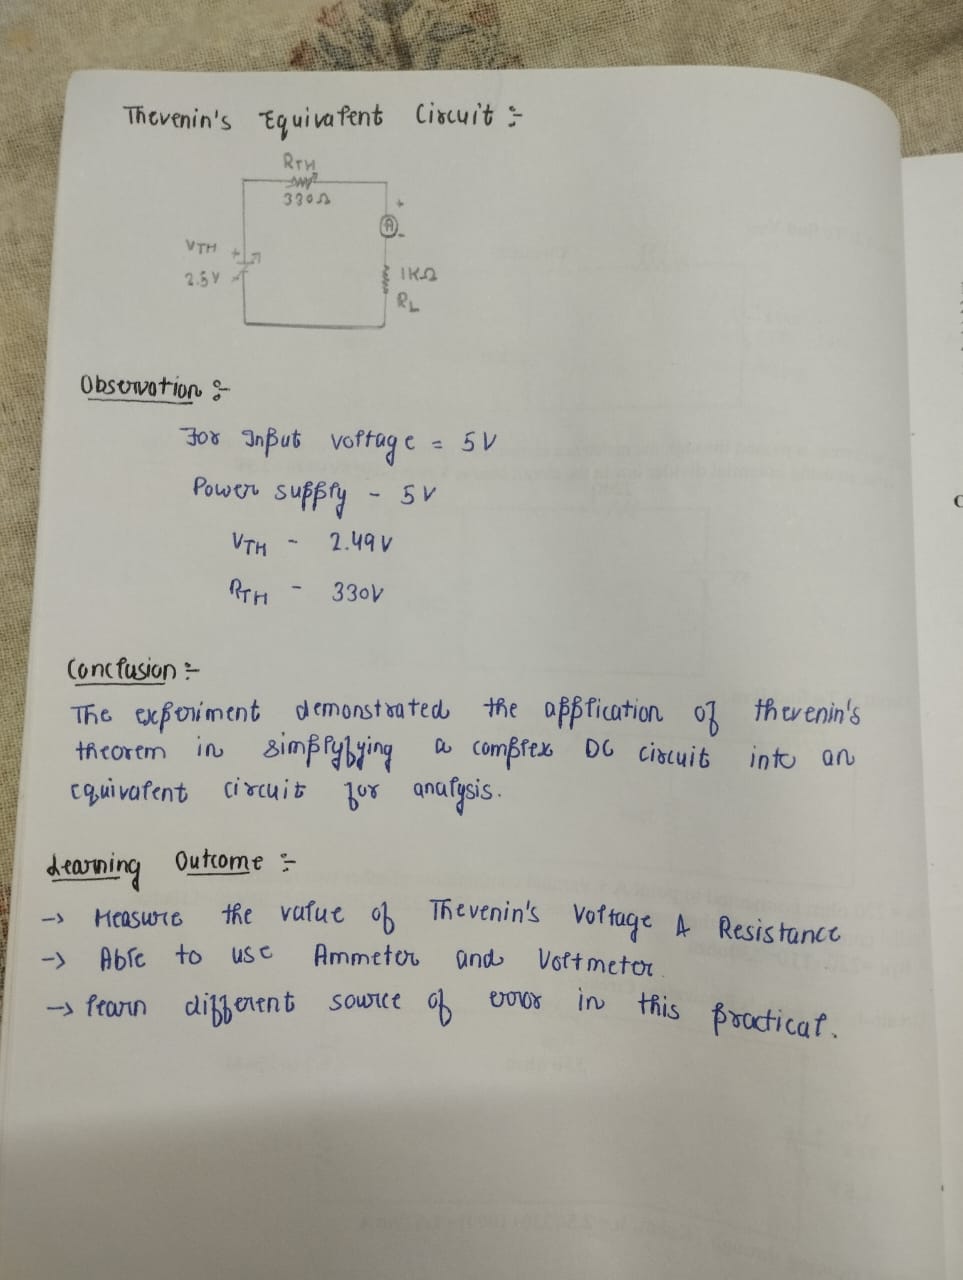 Thevenin's Equivalent Circuit :-
RTH
330Ω
+
A
-
VTH +
2.5V -
1KΩ
RL
Observation :-
For Input voltage = 5V
Power supply - 5V
VTH - 2.49V
RTH - 330V
Conclusion :-
The experiment demonstrated the application of thevenin's
theorem in simplyfying a complex DC circuit into an
equivalent circuit for analysis.
Learning Outcome :-
→ Measure the value of Thevenin's Voltage & Resistance
→ Able to use Ammeter and Voltmeter.
→ learn different source of error in this practical.